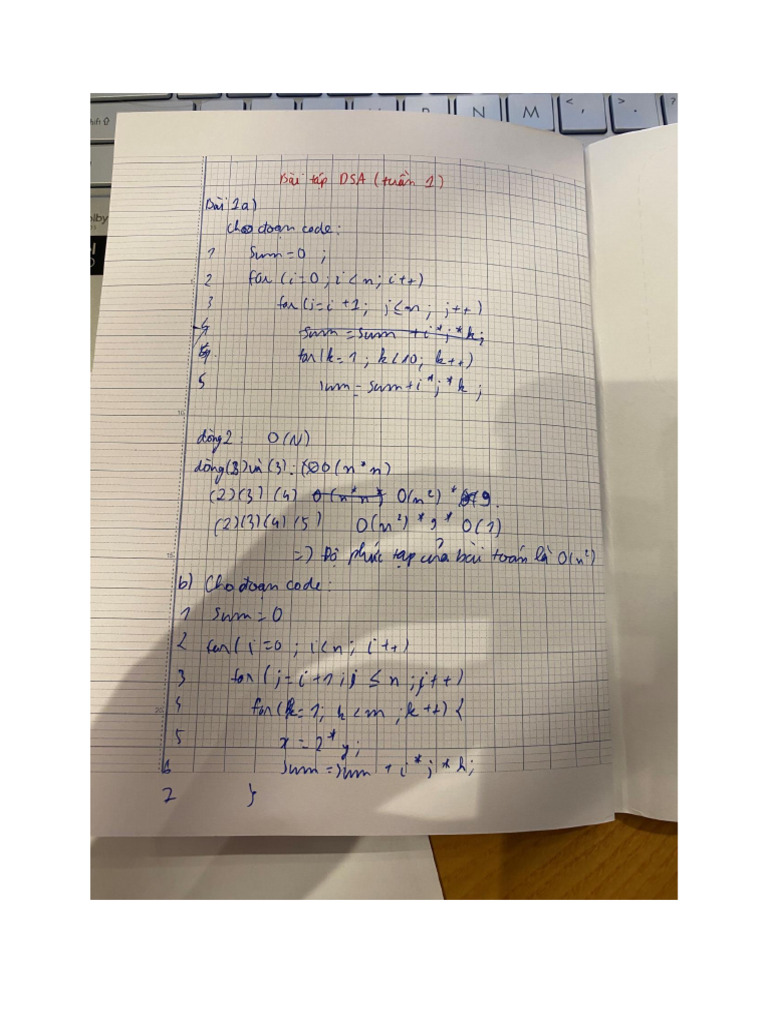 N M < , > . ?
Bài tập DSA (tuần 1)
Bài 1a)
Cho đoạn code:
1 Sum=0 ;
2 for (i=0; i<n; i++)
3 for (j=i+1; j<=n; j++)
4 sum = sum + i*j*k;
4 for (k=1; k<10; k++)
5 sum = sum+i*j*k;
dòng 2: O(N)
dòng (2) và (3): O(n*n)
(2)(3)(4) O(n*n* O(n²) * 9.
(2)(3)(4)(5) O(n²) * 9 * O(1)
=) Độ phức tạp của bài toán là O(n²)
b) Cho đoạn code:
1 Sum=0
2 for(i=0; i<n; i++)
3 for (j=i+1; j ≤ n; j++)
4 for(k=1; k<m; k++) {
5 x=2*y;
6 Sum=sum + i*j*k;
7 }